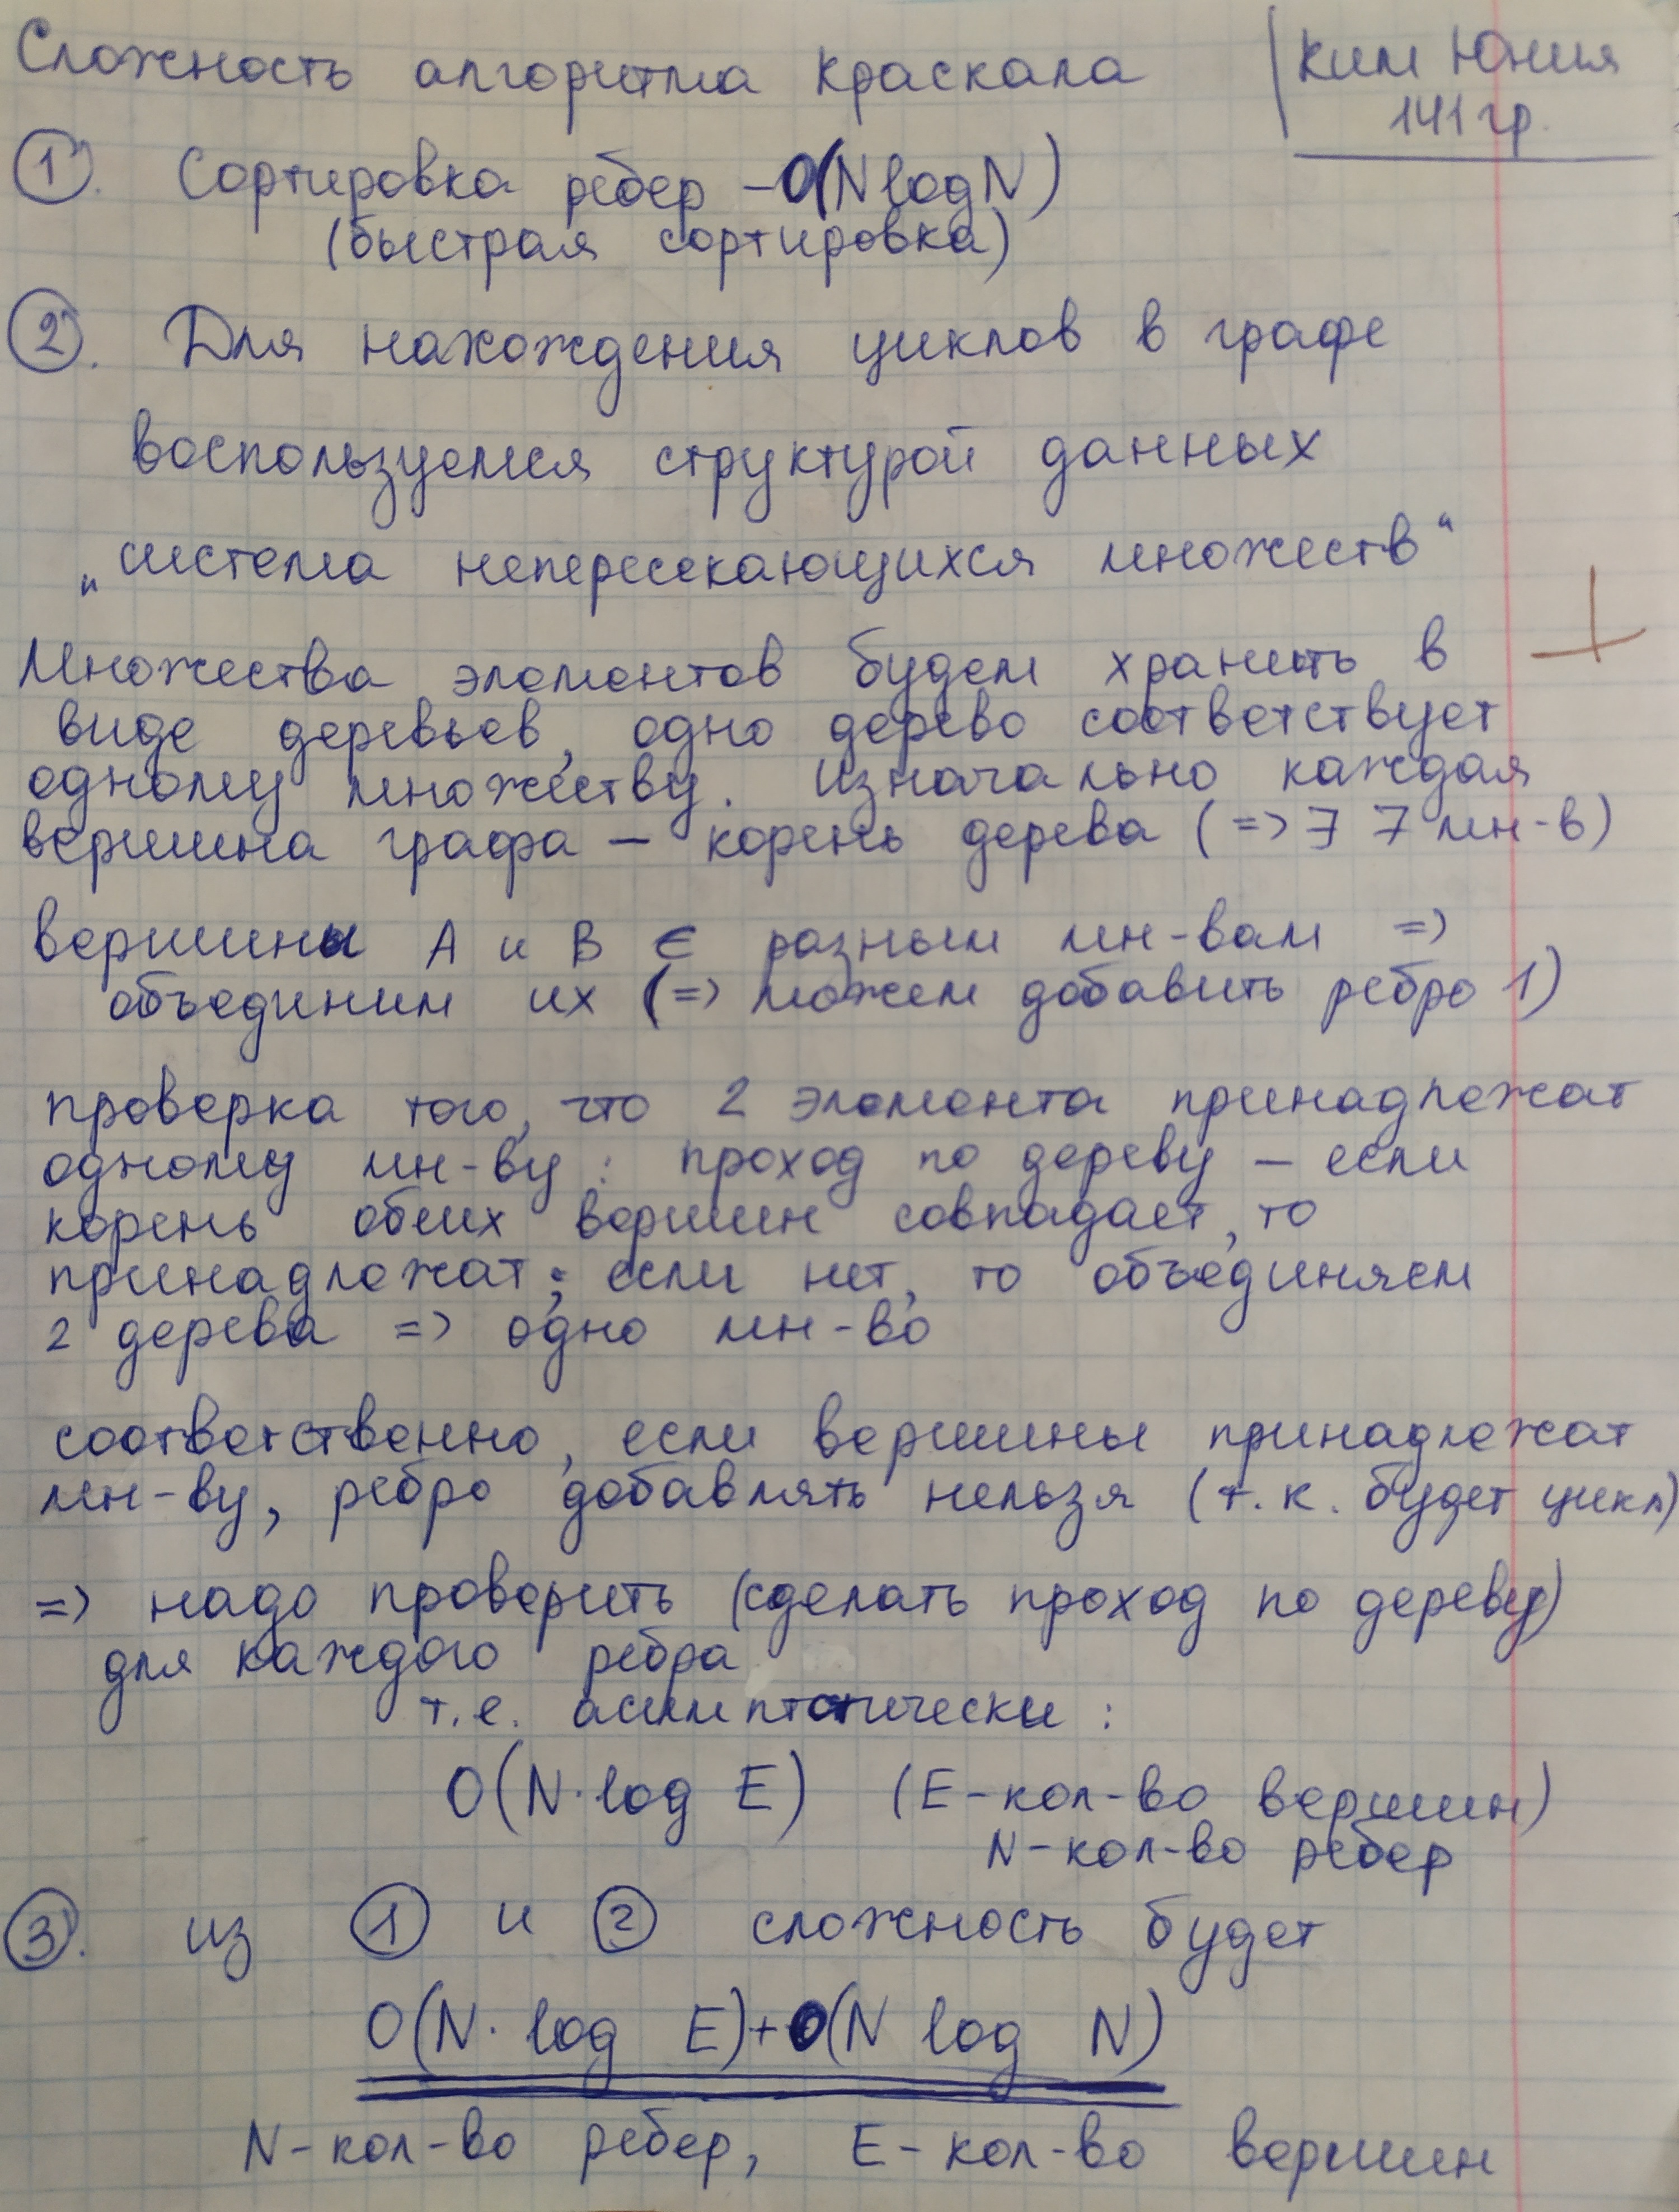 Сложность алгоритма Краскала
Ким Юния
141 гр.
1. Сортировка ребер - O(N log N)
(быстрая сортировка)
2. Для нахождения циклов в графе
воспользуемся структурой данных
„система непересекающихся множеств“
Множества элементов будем хранить в
виде деревьев, одно дерево соответствует
одному множеству. Изначально каждая
вершина графа – корень дерева (=> ∃ 7 мн-в)
вершины A и B ∈ разным мн-вам =>
объединим их (=> можем добавить ребро 1)
проверка того, что 2 элемента принадлежат
одному мн-ву : проход по дереву – если
корень обеих вершин совпадает, то
принадлежат; если нет, то объединяем
2 дерева => одно мн-во
соответственно, если вершины принадлежат
мн-ву, ребро добавлять нельзя (т.к. будет цикл)
=> надо проверить (сделать проход по дереву)
для каждого ребра
т.е. асимптотически :
O(N · log E) (E - кол-во вершин)
N - кол-во ребер
3. из 1 и 2 сложность будет
O(N · log E) + O(N log N)
N - кол-во ребер, E - кол-во вершин